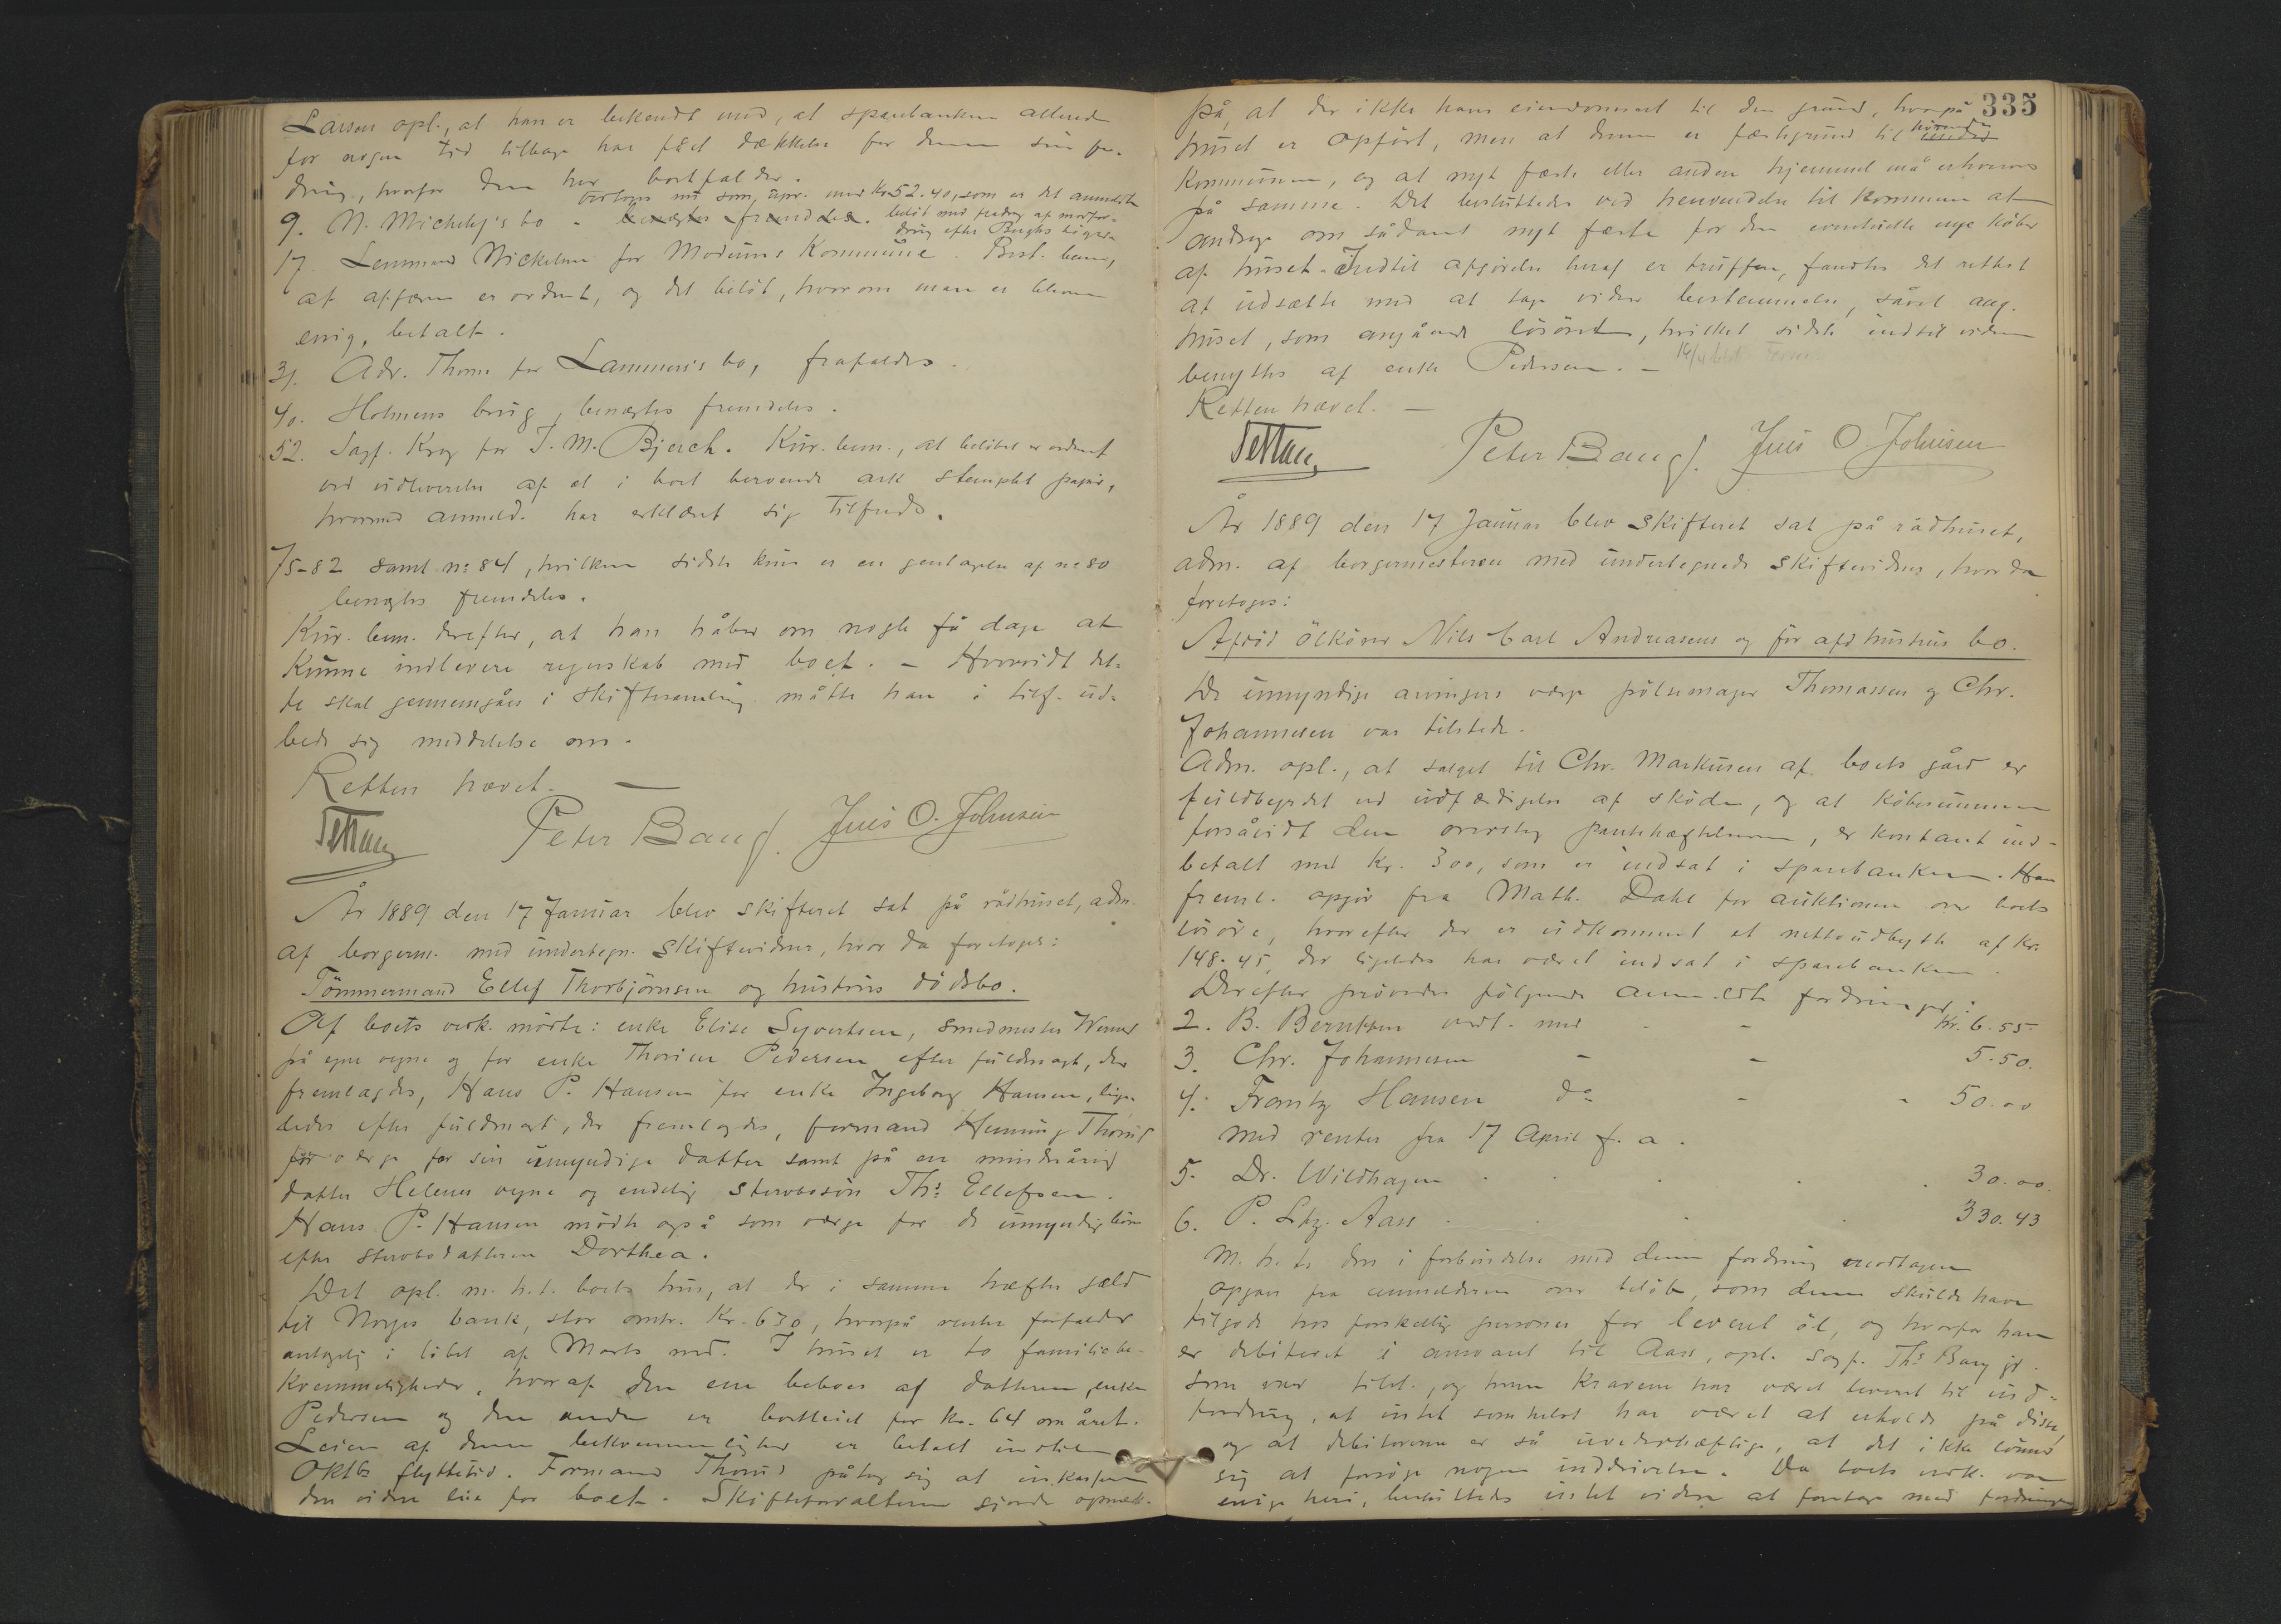 Larsen opl., at han er bekendt med, at sparebanken allered
for nogen tid tilbage har fået dækkelse for denne sin for-
dring, hvorfor den her bortfalder.
overtoges nu som upr. med Kr. 52.40, som er det anmeldte
9. N. Michelej's bo - benegtes fremdeles. beløb med fradrag af modfor-
dring efter
17. Lensmand Mickelsen for Modums Kommune. Best. bem.,
at affæren er ordnet, og det beløb, hvorom man er bleven
enig, betalt.
31. Adv. Thorne for Lammers's bo, frafaldes.
40. Holmens brug, benegtes fremdeles.
52. Sagf. Krog for J. M. Bjerch. Kur. bem., at beløbet er ordnet
ved udleverelse af et i boet beroende ark stemplet papir,
hvormed anmeld. har erklæret sig tilfreds.
75-82 samt no 84, hvilken sidste kun er en gentagelse af no 80
benegtes fremdeles.
Kur. bem. derefter, at han håber om nogle få dage at
kunne indlevere regnskab med boet. - Hvorvidt det-
te skal gennemgåes i skiftesamling måtte han i tilf. ud-
bede sig meddelelse om.
Retten hævet. —
Peter Baug. Juis O. Johnsen
År 1889 den 17 Januar blev skifteret sat på rådhuset, adm.
af borgerm. med undertegn. skiftevidner, hvor da foretoges:
Tömmermand Ellef Thorbjörnsen og hustrus dödsbo.
Af boets vedk. mödte: enke Elise Syvertsen, smedmester Werner
på egne vegne og for enke Thorine Pedersen efter fuldmagt, der
fremlagdes, Hans P. Hansen for enke Ingeborg Hansen, lige-
ledes efter fuldmagt, der fremlagdes, formand Henning Thorud
for værge for sin umyndige datter samt på en mindreårig
datter Helenes vegne og endelig stervbosön Ths. Ellefsen.
Hans P. Hansen mödte også som værge for de umyndige börn
efter stervbodatteren Dorthea.
Det opl. m. h. t. boets hus, at der i samme hæfter gæld
til Norges bank, stor omtr. Kr. 630, hvorpå renter forfalder
antagelig i löbet af Marts md. I huset er to familiebe-
kvemmeligheder, hvoraf den ene beboes af datteren, enke
Pedersen og den anden er bortleiet for Kr. 64 om året.
Leien af denne bekvemmelighed er betalt indtil
Oktbr flyttetid. Formand Thorud påtog sig at inkassere
den videre leie for boet. Skifteforvalteren gjorde opmærk-
335
på, at der ikke haves eiendomsret til den grund, hvorpå
huset er opfört, men at denne er fæstegrund til
Kommunen, og at nyt fæste eller anden hjemmel må erhverves
på samme. Det besluttedes ved henvendelse til kommunen at
andrage om sådant nyt fæste for den eventuelle nye köber
af huset. Indtil afgörelse heraf er truffen, fandtes det rettest
at udsætte med at tage videre bestemmelse, såvel ang.
huset, som angående lösöret, hvilket sidste indtil videre
benyttes af enke Pedersen. -
Retten hævet. —
Peter Baug. Juis O. Johnsen
År 1889 den 17 Januar blev skifteret sat på rådhuset,
adm. af borgermesteren med undertegnede skiftevidner, hvor da
foretoges:
Afdöd ölkörer Nils Carl Andreasens og för afd hustrus bo.
De umyndige arvingers værge pölsemager Thomassen og Chr.
Johannesen var tilstede.
Adm. opl., at salget til Chr. Markusen af boets gård er
fuldbyrdet ved udfærdigelse af sköde, og at köbesummen
forsåvidt den oversteg pantehæftelserne, er kontant ind-
betalt med Kr. 300, som er indsat i sparebanken. Han
freml. opgjör fra Math. Dahl for auktionen over boets
lösöre, hvorefter der er udkommet et nettoudbytte af Kr.
148.45, der ligeledes har været indsat i sparebanken.
Derefter prövedes fölgende anmeldte fordringer:
2. B. Berntsen vedt. med - - Kr. 6.55.
3. Chr. Johannesen - - 5.50.
4. Frantz Hansen do - - 50.00
med renter fra 17 April f. a.
5. Dr. Wildhagen . . . . 30.00.
6. P. Ltz. Aass . . . 330.43
M. h. t. den i forbindelse med denne fordring modtagne
opgave fra anmelderen over beløb, som denne skulde have
tilgode hos forskellige personer for leveret öl, og hvorfor han
er debiteret i anvaret til Aass, opl. sagf. Ths Bang jr.
som var tilst., og hvem kravene har været leveret til ind-
fordring, at intet somhelst har været at erholde på disse,
og at debitorerne er så uvederhæftige, at det ikke lönner
sig at forsöge nogen inddrivelse. Da boets vedk. var
enige heri, besluttedes intet videre at foretage med fordringen